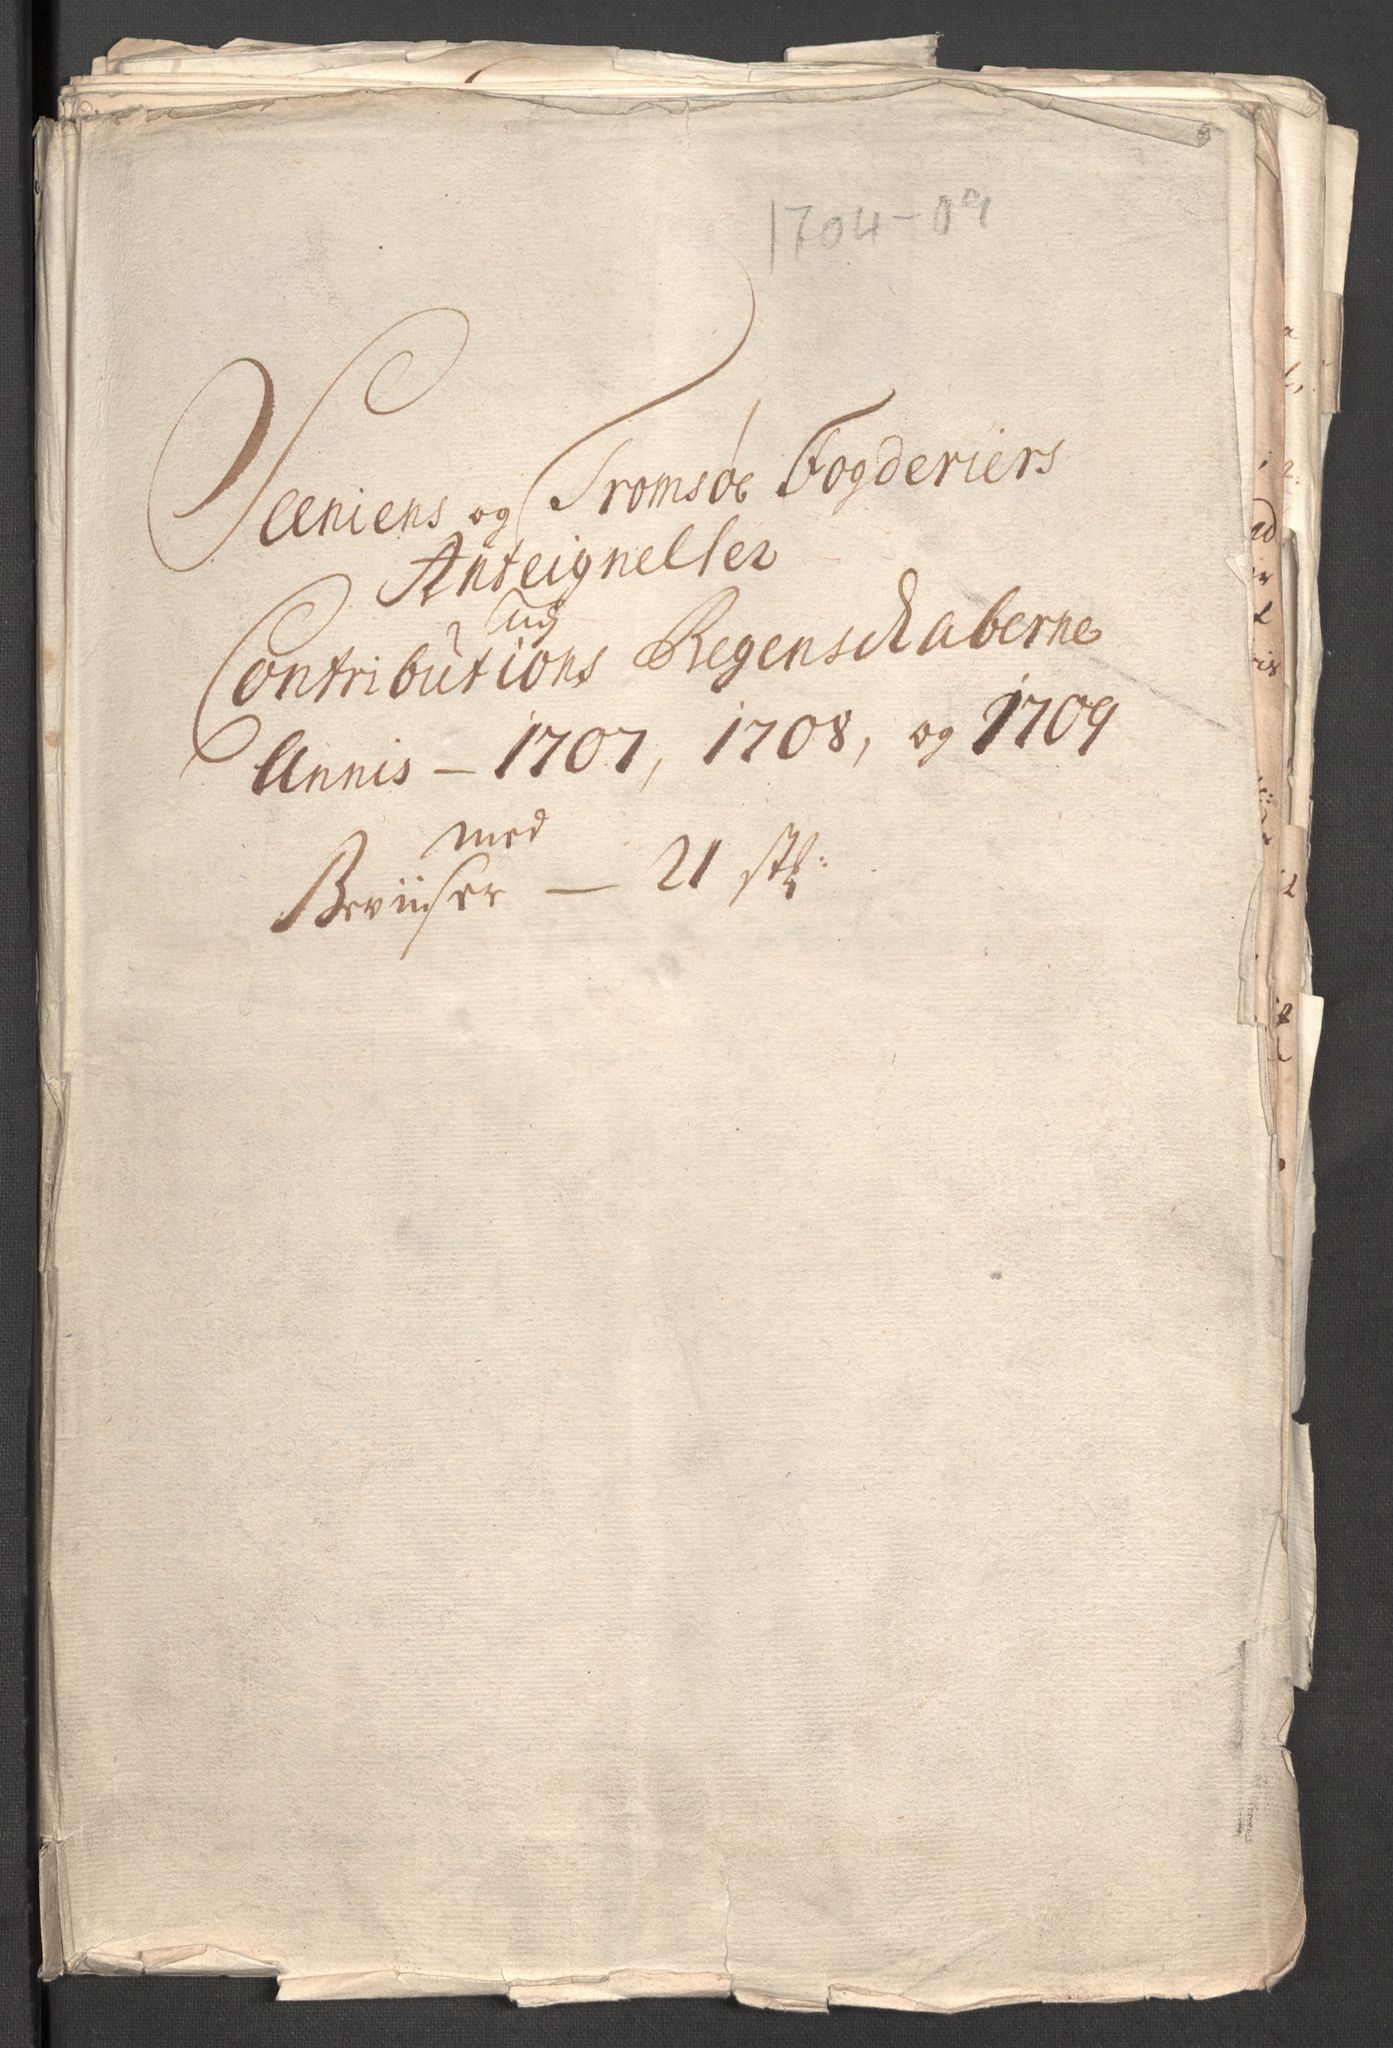 1704-09
Seniens og Tromsøe Fogderiers
Anteignelser
ved
Contributions Regenschaberne
Annis - 1707, 1708, og 1709
med
Beviiser - 21 stk: